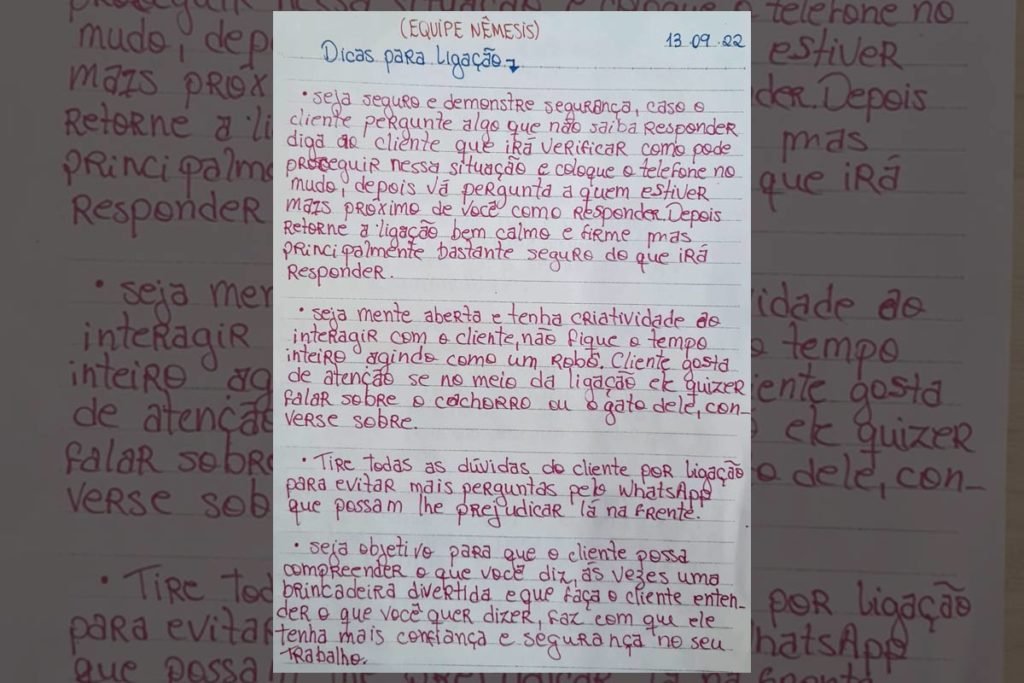 (EQUIPE NÊMESIS)
13.09.22
Dicas para Ligação
• seja seguro e demonstre segurança, caso o
cliente pergunte algo que não saiba responder
diga ao cliente que irá verificar como pode
proseguir nessa situação e coloque o telefone no
mudo, depois vá pergunta a quem estiver
mais próximo de você como responder. Depois
retorne a ligação bem calmo e firme mas
principalmente bastante seguro do que irá
responder.
• seja mente aberta e tenha criatividade ao
interagir com o cliente, não fique o tempo
inteiro agindo como um robô. Cliente gosta
de atenção se no meio da ligação ele quizer
falar sobre o cachorro ou o gato dele, con-
verse sobre.
• Tire todas as dúvidas do cliente por ligação
para evitar mais perguntas pelo WhatsApp
que possam lhe prejudicar lá na frente.
• seja objetivo para que o cliente possa
compreender o que você diz, ás vezes uma
brincadeira divertida e que faça o cliente enten-
der o que você quer dizer, faz com que ele
tenha mais confiança e segurança no seu
trabalho.